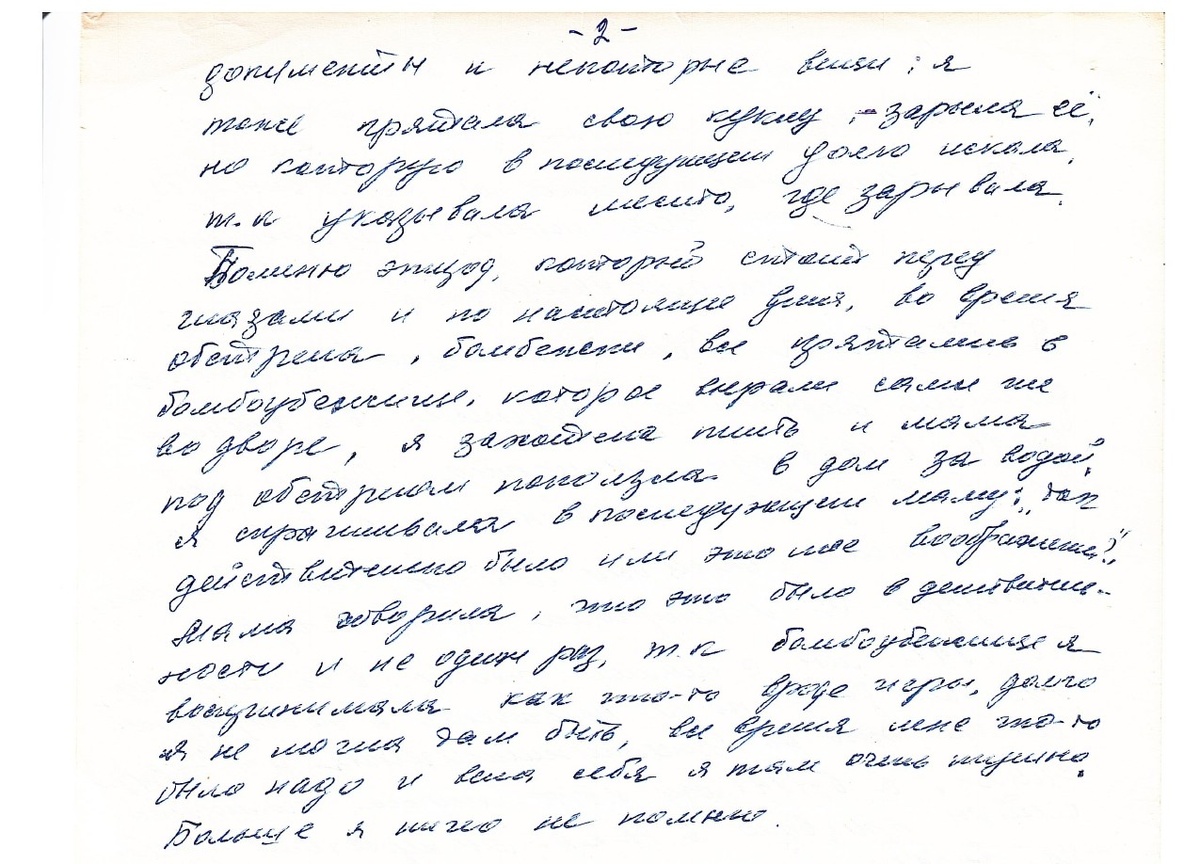 - 2 -
документы и некоторые вещи; я
тоже прятала свою куклу, - зарыла её,
но которую в последующем долго искала,
т.к указывала место, где зарывала.
Помню эпизод, который стоит перед
глазами и по настоящие дня, во время
обстрела, бомбежки, все прятались в
бомбоубежищи, которое вырыли сами же
во дворе, я захотела пить и мама
под обстрелом поползла в дом за водой,
я спрашивала в последующем маму: "так
действительно было или это мое воображение?",
Мама говорила, что это было в действитель-
ности и не один раз, т.к бомбоубежище я
воспринимала как что-то вроде игры, долго
я не могла там быть, все время мне что-то
было надо и вела себя я там очень шумно.
Больше я ничего не помню.